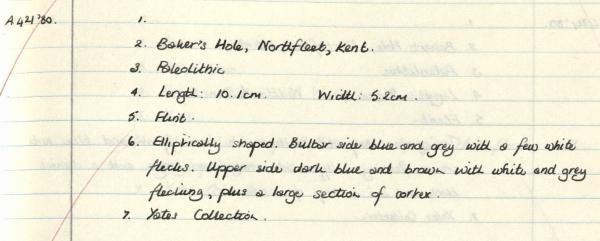 A421'80.
1.
2. Baker's Hole, Northfleet, Kent.
3. Paleolithic
4. Length: 10.1cm. Width: 5.2cm.
5. Flint.
6. Elliptically shaped. Bulbar side blue and grey with a few white
flecks. Upper side dark blue and brown with white and grey
flecking, plus a large section of cortex.
7. Yates Collection.